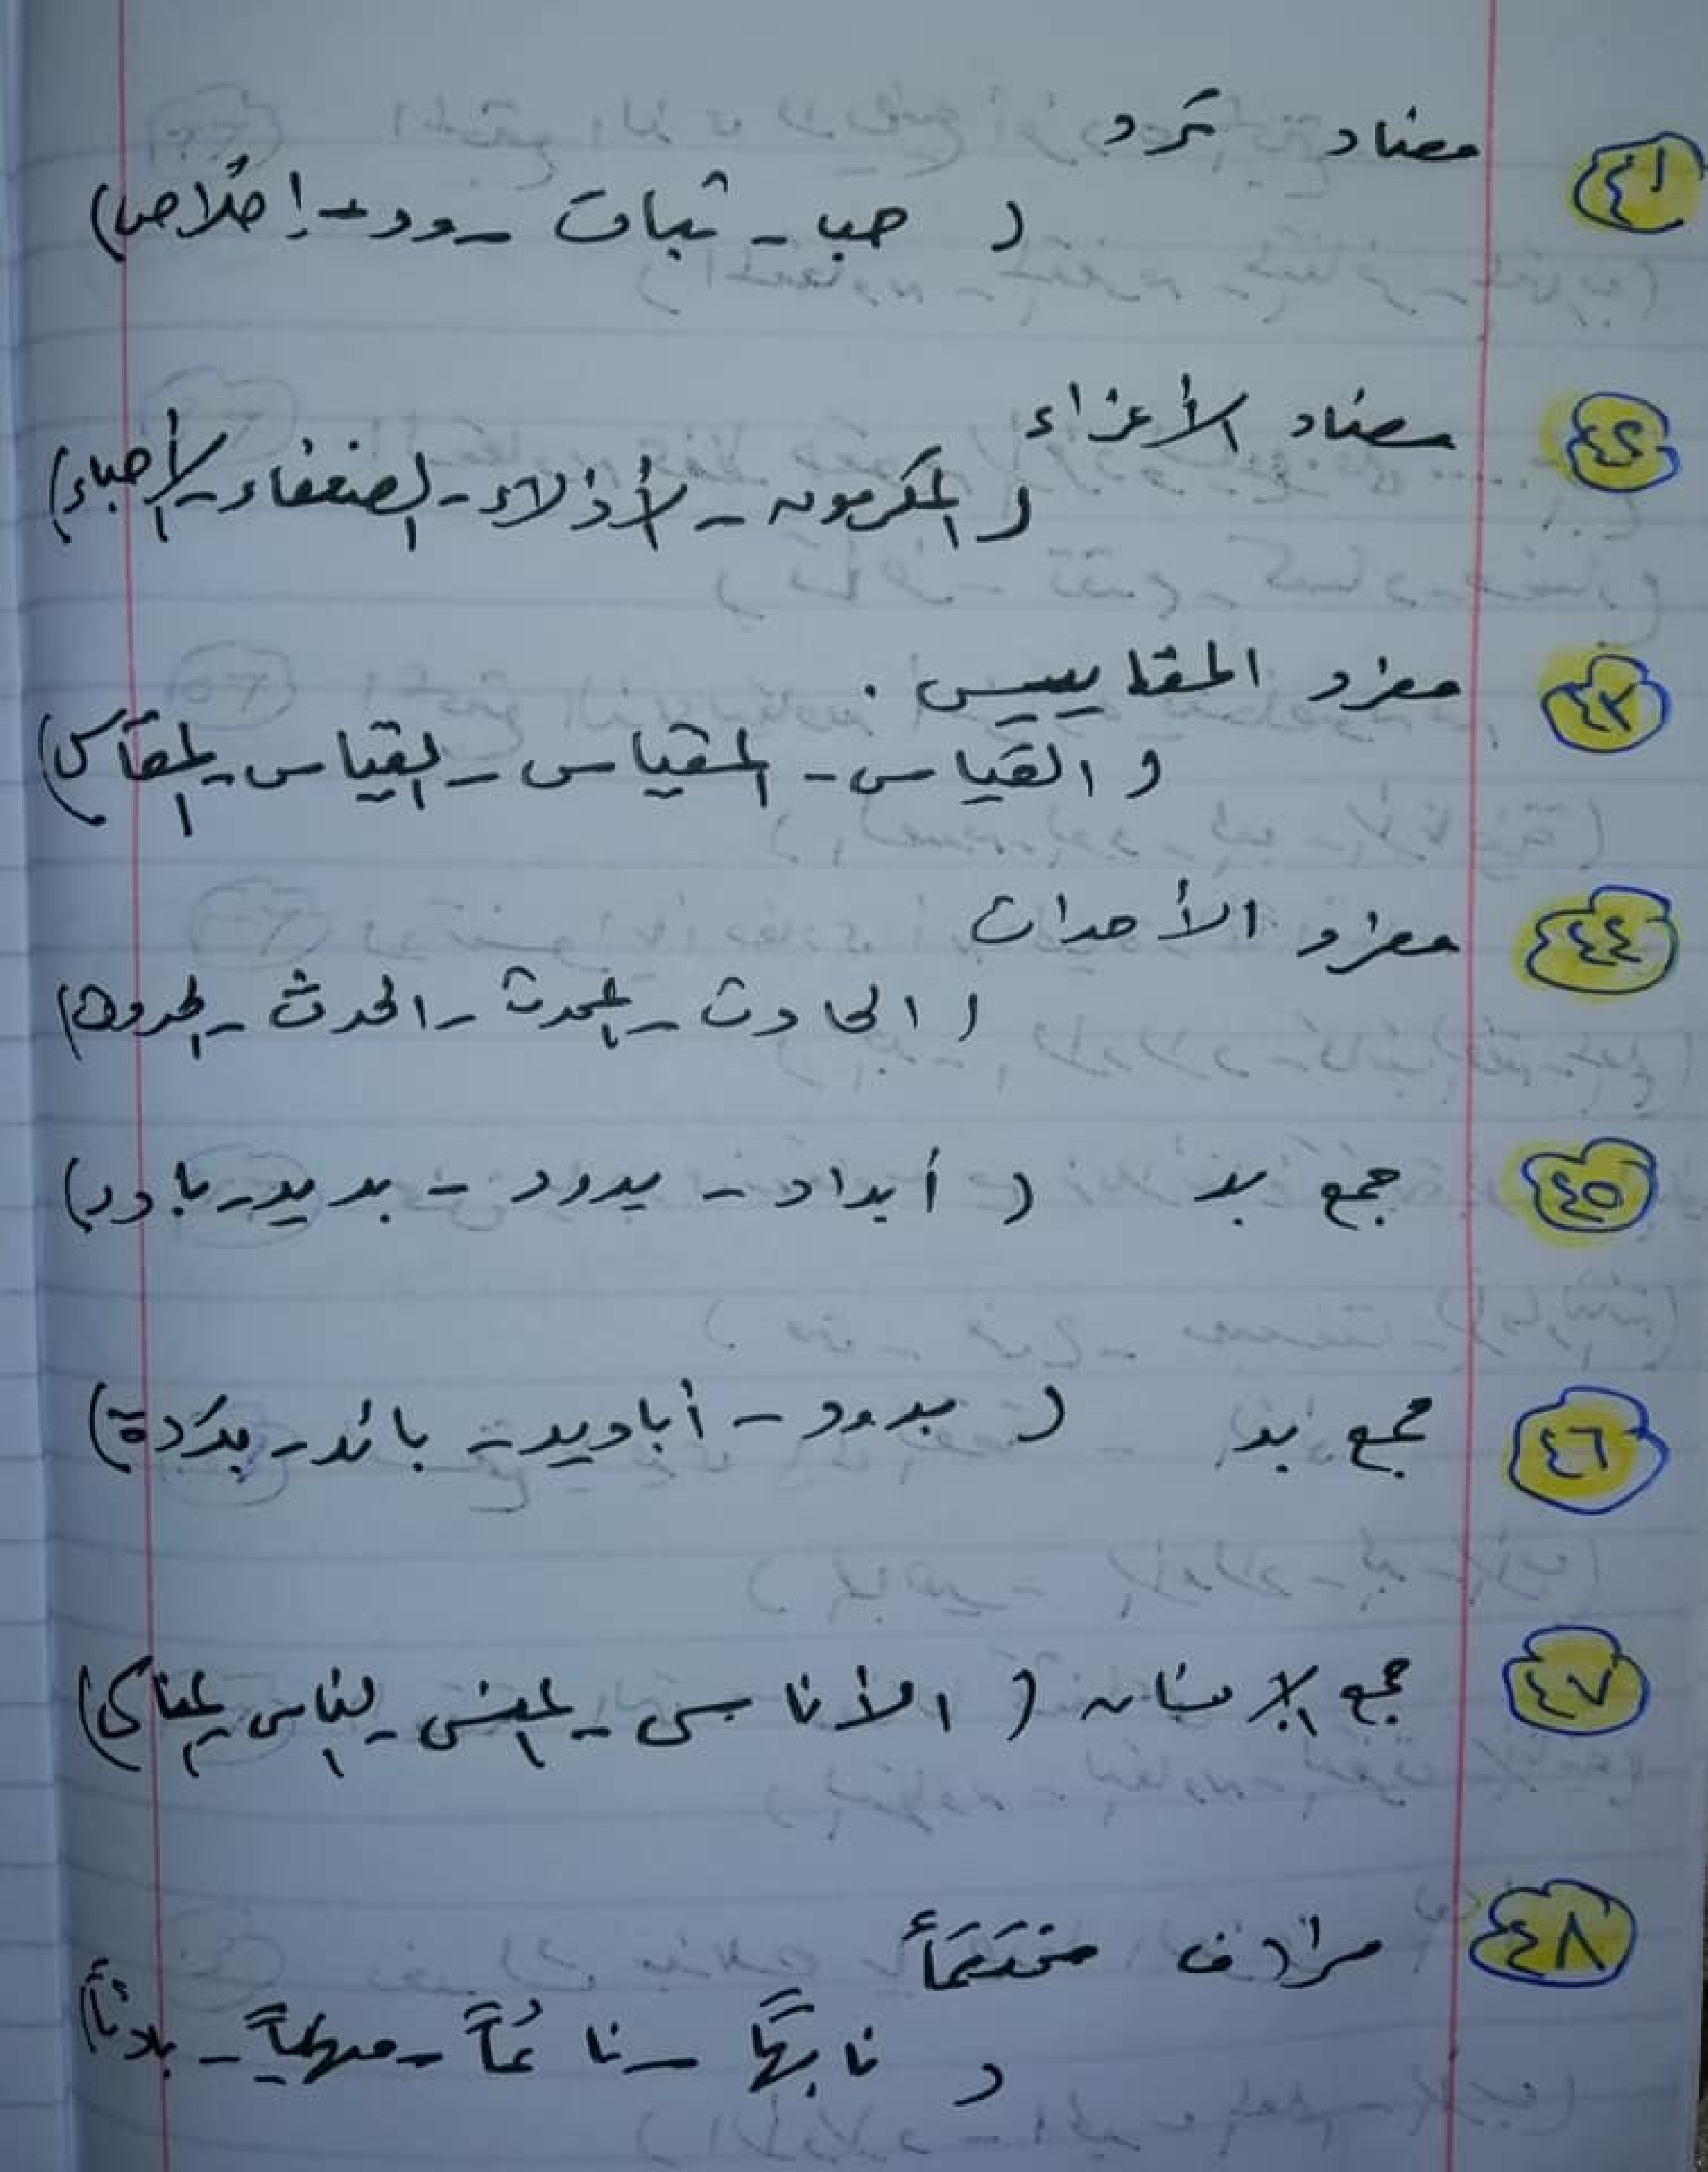 ٤١ مضاد تمرد
( حب - ثبات - ود - إخلاص )
٤٢ مضاد الأعزاء
( المكرمون - الأذلاء - الضعفاء - الأحباء )
٤٣ مفرد المقاييس .
( القياس - المقياس - القياس - المقاس )
٤٤ مفرد الأحداث
( الحادث - المحدث - الحدث - الحدوث )
٤٥ جمع بد ( أبداد - بدود - بديد - بادد )
٤٦ جمع بد ( بدود - أباديد - بائد - بددة )
٤٧ جمع الإنسان ( الأناسى - المنسى - الناس )
٤٨ مرادف
( نابهًا - نائمًا -